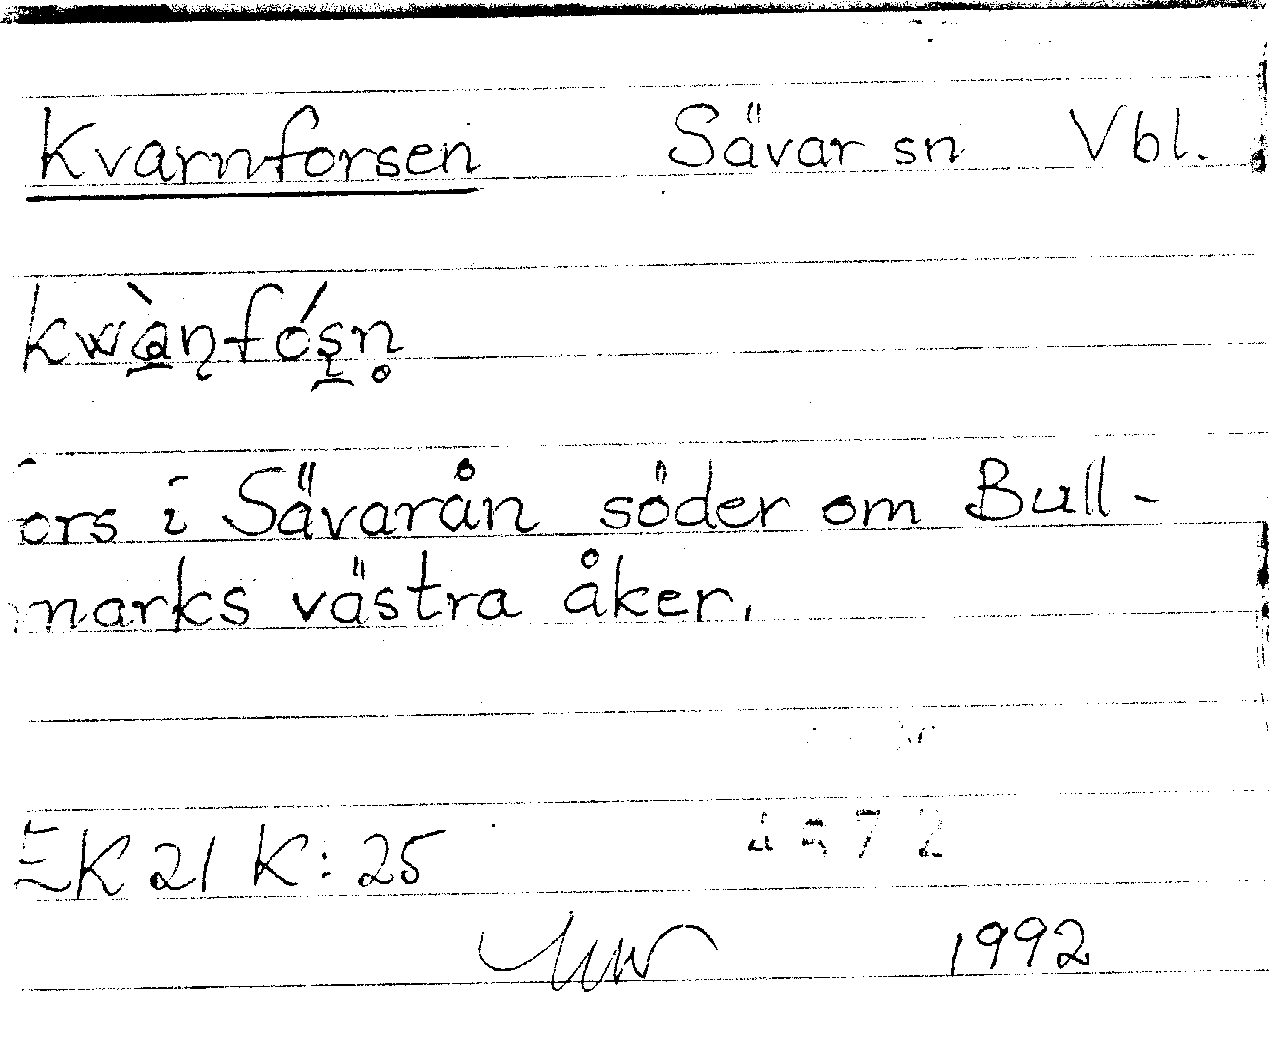 Kvarnforsen Sävar sn Vbl.
kwàṇfóṣn̥
ors i Sävarån söder om Bull-
marks västra åker.
EK 21 K:25
1992